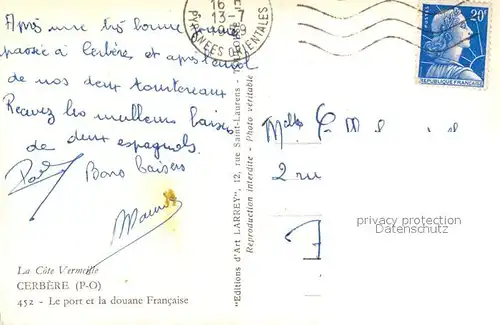 16 H
13-7
19
PYRENEES ORIENTALES
20F
POSTES
REPUBLIQUE FRANÇAISE
Après une très bonne
passée à Cerbère et après
de nos deux tourtereaux
Recevez les meilleurs baisers
de deux espagnols.
Bons baisers
"Editions d'Art LARREY", 12, rue Saint-Laurens - TOULOUSE
Reproduction interdite - Photo véritable
2 ru
privacy protection
AKPool.de
La Côte Vermeille
CERBÈRE (P-O)
452 - Le port et la douane Française